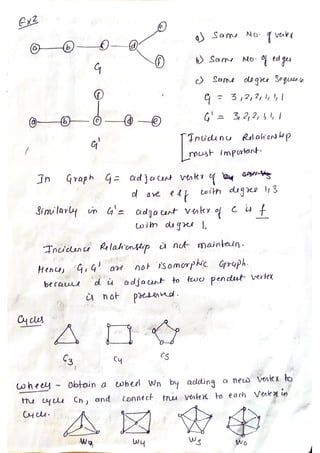 Ex2
a) Same No. of vertex
b) Same No. of edges
c) Same degree Sequence
G = 3,2,2,1,1,1
G' = 3,2,2,1,1,1
[Incidence Relationship
must important.
e
a b c d
f
G
f
a b c d e
G'
In Graph G = adjacent vertex of
d are e & f with degree 1,3
Similarly in G' = adjacent vertex of c is f
with degree 1.
Incidence Relationship is not maintain.
Hence, G, G' are not isomorphic Graph.
because d is adjacent to two pendent vertex
is not preserved.
Cycles
C3 C4 C5
Wheels - Obtain a wheel Wn by adding a new vertex to
the cycle Cn, and connect this vertex to each Vertex in
Cycle.
W4 W5